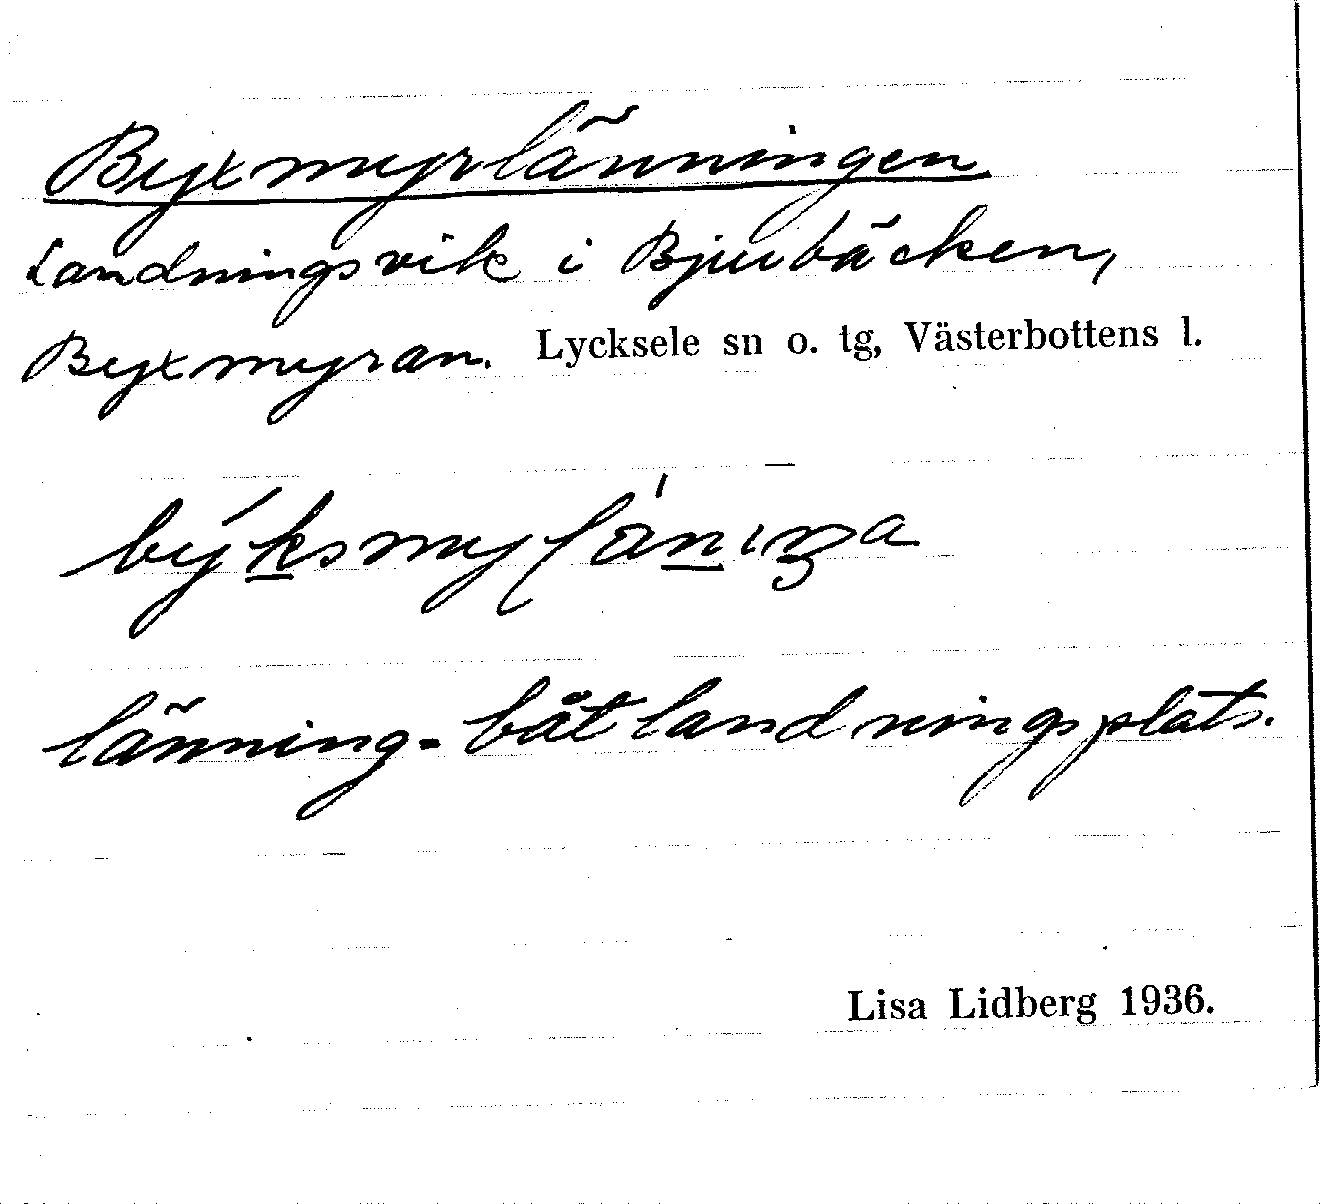 Byxmyrlänningen
Landningsvik i Bjurbäcken,
Byxmyran. Lycksele sn o. tg, Västerbottens l.
länning - båtlandningsplats.
Lisa Lidberg 1936.